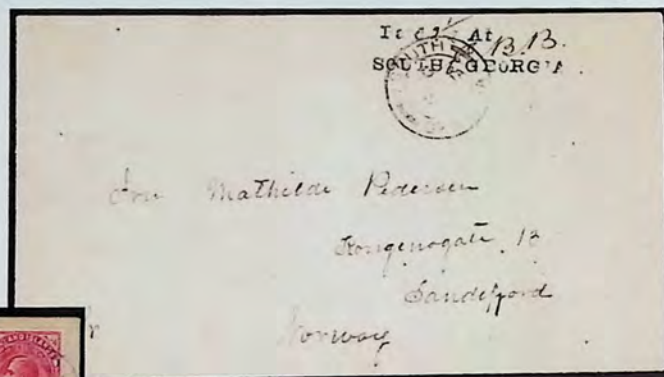 At B.B.
SOUTH GEORGIA
SOUTH
Fru Mathilde Pedersen
Kongensgate 13
Sandefjord
Norway